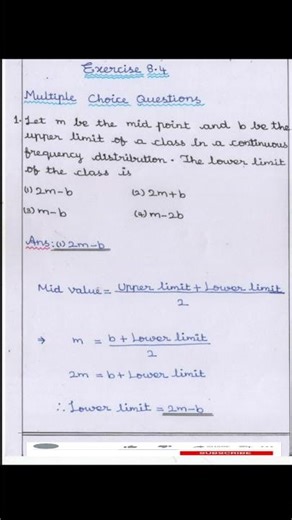 Exercise 8.4
Multiple Choice Questions
1. Let m be the mid point and b be the
upper limit of a class in a continuous
frequency distribution. The lower limit
of the class is
(1) 2m-b (2) 2m+b
(3) m-b (4) m-2b
Ans: (1) 2m-b
Mid value = Upper limit + Lower limit
2
⇒ m = b + Lower limit
2
2m = b + Lower limit
∴ Lower limit = 2m-b
SUBSCRIBE